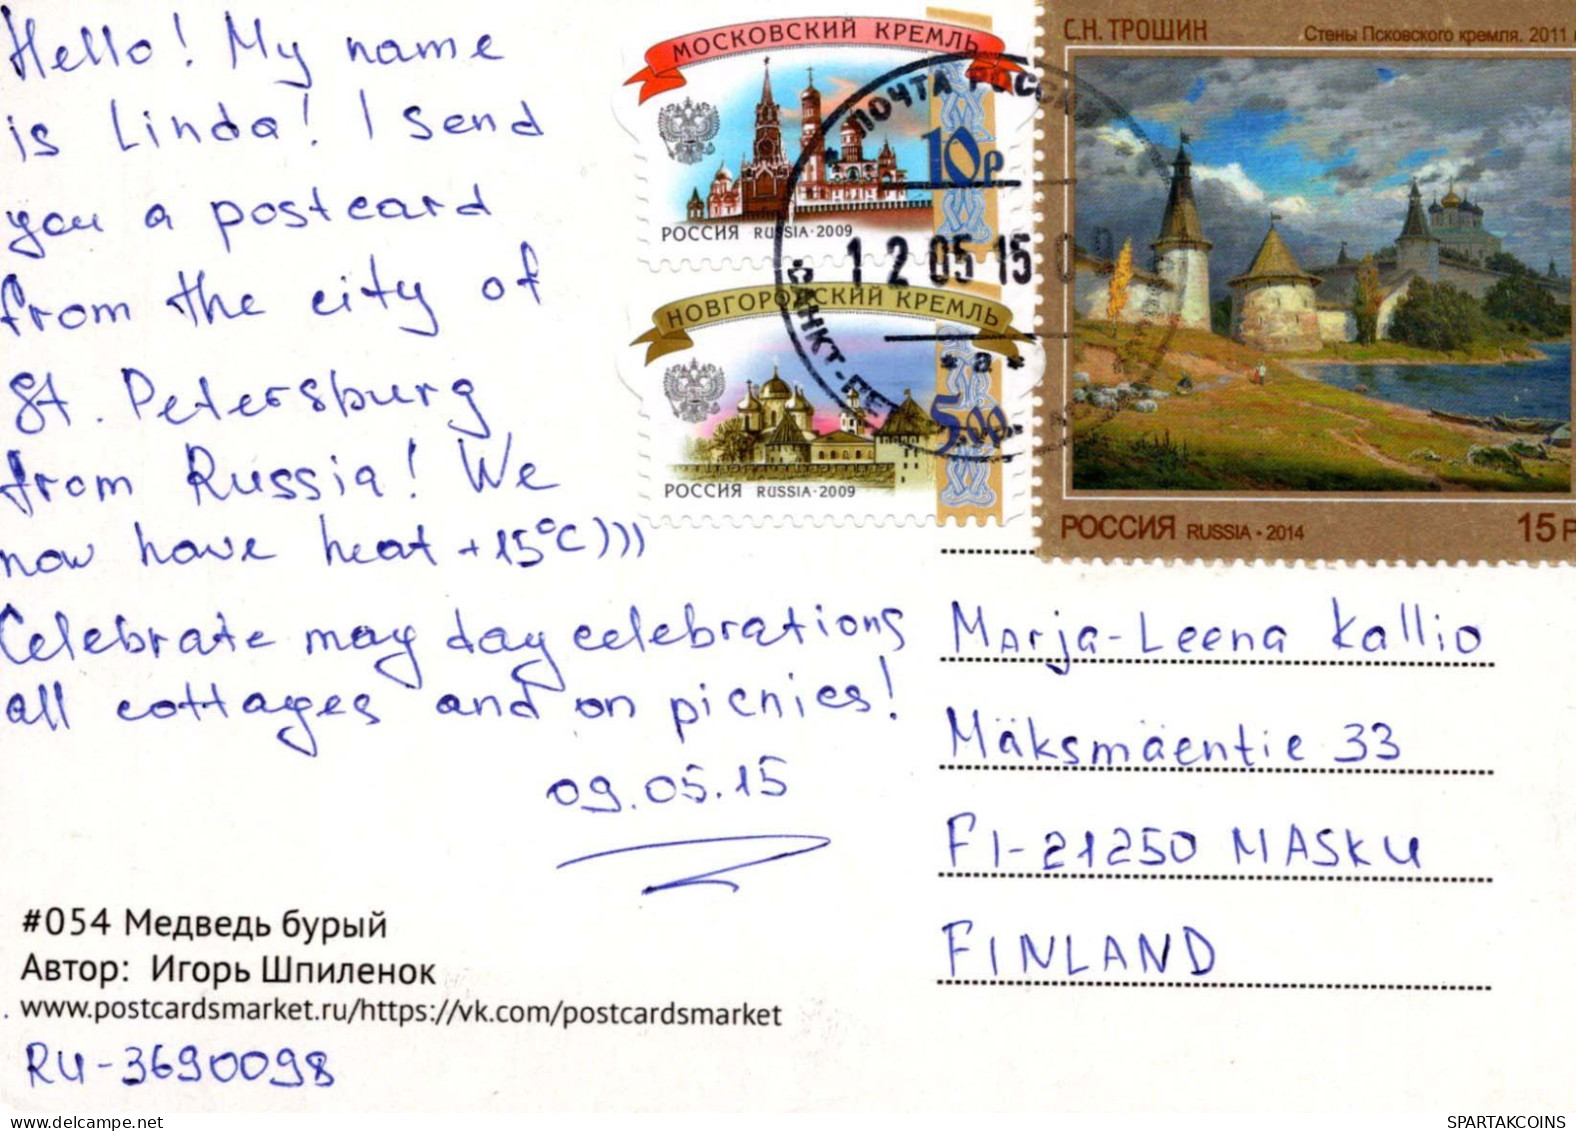 Hello! My name
is Linda! I send
you a postcard
from the city of
St. Petersburg
from Russia! We
now have heat +15°C)))
Celebrate may day celebrations
all cottages and on picnics!
09.05.15
#054 Медведь бурый
Автор: Игорь Шпиленок
www.postcardsmarket.ru/https://vk.com/postcardsmarket
RU-3690098
МОСКОВСКИЙ КРЕМЛЬ
10 р
РОССИЯ RUSSIA·2009
НОВГОРОДСКИЙ КРЕМЛЬ
5.00
РОССИЯ RUSSIA·2009
С.Н. ТРОШИН
Стены Псковского кремля. 2011
РОССИЯ RUSSIA·2014
15 Р
ПОЧТА РОССИ
12 05 15
* а *
САНКТ-ПЕТ
Marja-Leena Kallio
Mäksmäentie 33
FI-21250 MASKU
FINLAND
www.delcampe.net
SPARTAKCOINS